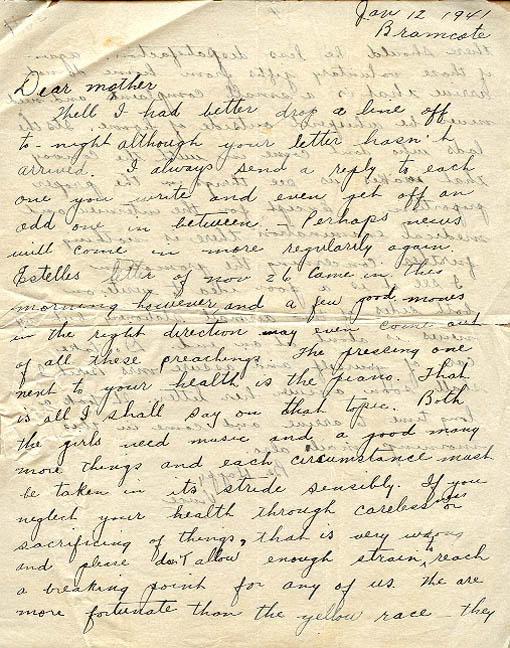 Jan 12 1941
Bramcote
Dear mother
Well I had better drop a line off
to-night although your letter hasn't
arrived. I always send a reply to each
one you write and even get off an
odd one in between. Perhaps news
will come in more regularly again.
Estelles letter of nov 26 came in this
morning however and a few good moves
in the right direction may even come out
of all these preachings. The pressing one
next to your health is the piano. That
is all I shall say on that topic. Both
the girls need music and a good many
more things and each circumstance must
be taken in its stride sensibly. If you
neglect your health through carelessness or
sacrificing of things, that is very wrong
and please don't allow enough strain to reach
a breaking point for any of us. We are
more fortunate than the yellow race — they